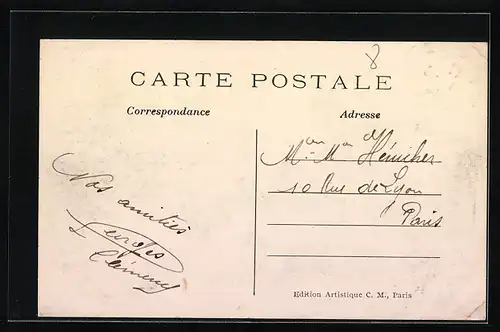 8
CARTE POSTALE
Correspondance
Adresse
Nos amitiés
Mr. Mme
10 Rue de Lyon
Paris
Edition Artistique C. M., Paris